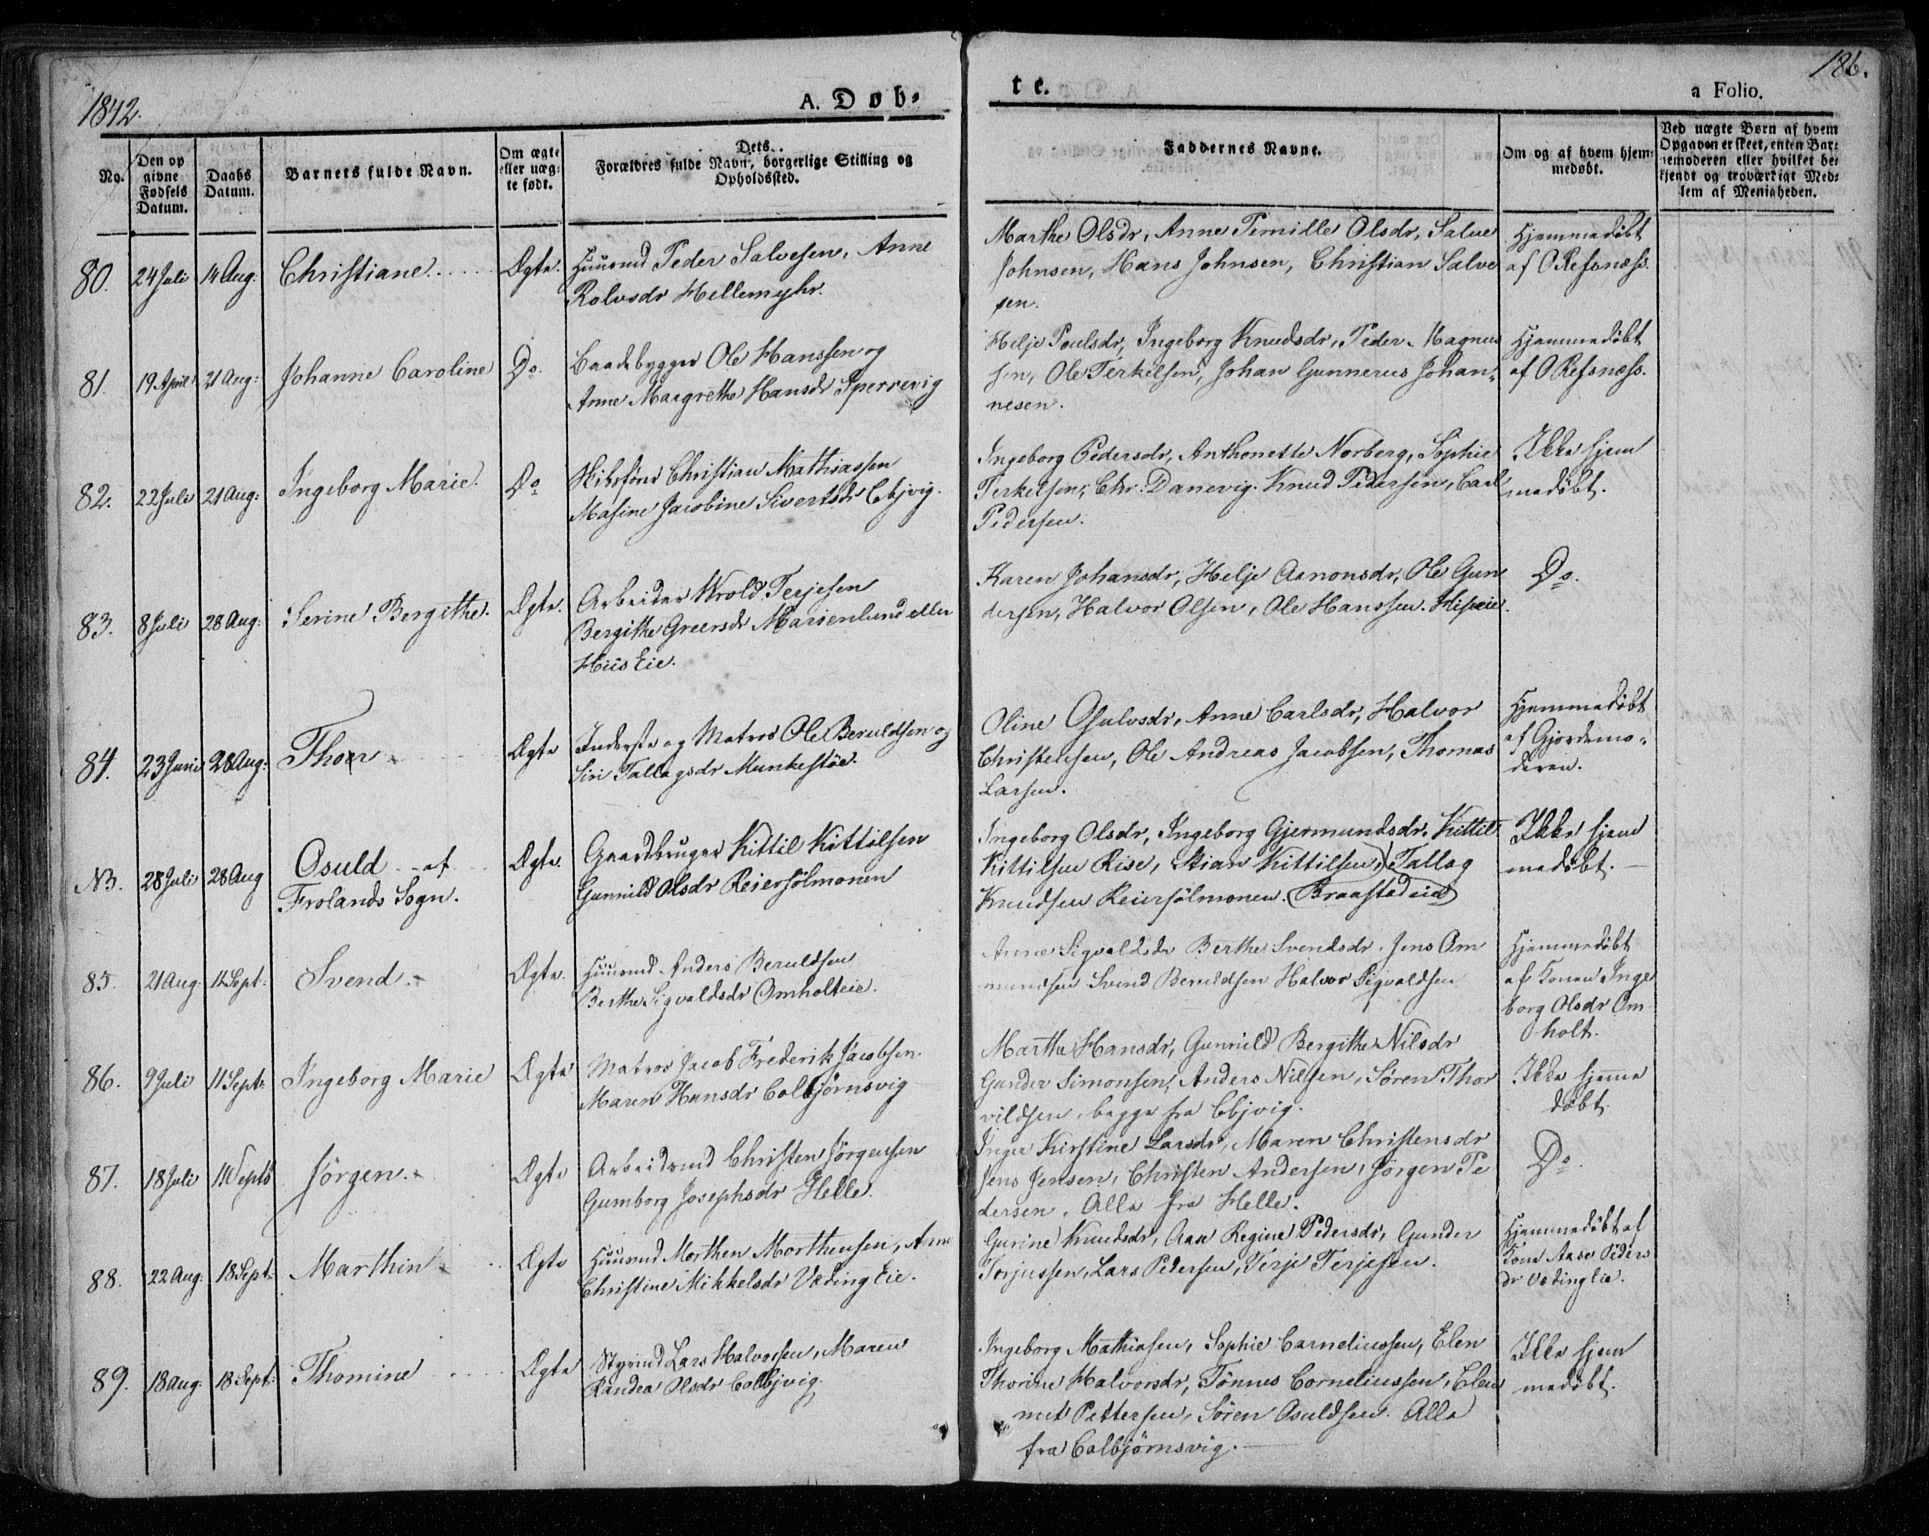 1842.
A. Døb-
te.
a Folio.
186.
No.
Den op
givne
Fødsels
Datum.
Daabs
Datum.
Barnets fulde Navn.
Om ægte
eller uæg-
te født.
Dets
Forældres fulde Navn, borgerlige Stilling og
Opholdssted.
Faddernes Navne.
Om og af hvem hjem-
medøbt.
Ved uægte Børn af hvem
Opgaven er skeet, enten Bar-
nemoderen eller hvilket be-
kjendt og troværdigt Med-
lem af Menigheden.
80. 24 Juli 14 Aug: Christiane Ægte.
Huusmd Peder Salvesen, Anne
Rolvsdr Hellemyhr.
Marthe Olsdr, Anne Pernille Olsdr, Salve
Johnsen, Hans Johnsen, Christian Salve
sen.
Hjemmedøbt
af O Refsnæss.
81. 19 April 21 Aug: Johanne Caroline Do.
Baadebygger Ole Hanssen og
Anne Margrethe Hansdr Sperrevig
Helje Poulsdr, Ingeborg Knudsdr, Peder Magnus
sen, Ole Terkelsen, Johan Gunnerus Johan-
nesen.
Hjemmedøbt
af O Refsnæss.
82. 22 Juli 21 Aug: Ingeborg Marie. Do
Christian Mathiassen
Masine Jacobine Sivertsdr Ebjvig.
Ingeborg Pedersdr, Anthonette Norberg, Sophie
Terkelsen, Chr. Danevig. Knud Pedersen, Carl
Pedersen.
Ikke hjem
medøbt.
83. 8 Juli 28 Aug: Serine Bergithe. Ægte.
Arbeider Wrold Terjesen
Bergithe Greersdr Marienlund eller
Hiis Eie.
Karen Johansdr, Helje Aanonsdr, Ole Gun
dersen, Halvor Olsen, Ole Hanssen. Hiseie.
Do.
84. 23 Juni 28 Aug: Thor Ægte
Inderste og Matros Ole Beruldsen og
Siri Tallagsdr Munkestøe.
Oline Osulvsdr, Anne Carlsdr, Halvor
Christensen, Ole Andreas Jacobsen, Thomas
Larsen.
Hjemmedøbt
af Gjordemo-
deren.
NB. 28 Juli 28 Aug Osuld af Ægte.
Frolands Sogn.
Gaardbruger Kittil Kittilsen
Gunnild Olsdr Reiersölmonen
Ingeborg Olsdr, Ingeborg Gjermundsdr, Kittil
Kittilsen Rise, Stian Kittilsen, Tallag
Knudsen Reiersölmonen. (Braastadeie)
Ikke hjem
medøbt.
85. 21 Aug 11 Sept: Svend. Ægte.
Huusmd. Anders Beruldsen
Berthe Sigvaldsdr Omholteie.
Anne Sigvaldsdr Berthe Svendsdr. Jens Om
mundsen Svend Beruldsen Halvor Sigvaldsen
Hjemmedøbt
af Konen Inge
borg Olsdr Om
holt.
86. 9 Juli 11 Sept: Ingeborg Marie Ægte
Matros Jacob Frederik Jacobsen.
Maren Hansdr Colbjørnsvig
Marthe Hansdr, Gunnild Bergithe Nilsdr
Gunder Simonsen, Anders Nilsen, Søren Thor
vildsen, begge fra Ebjvig.
Ikke hjemme
døbt.
87. 18 Juli 11 Septb Jörgen. Ægte
Arbeidsmd Christen Jörgensen
Gumborg Josephsdr Helle.
Inger Kirstine Larsdr, Maren Christensdr
Jens Jensen, Christen Andersen, Jörgen Pe
dersen. Alle fra Helle.
Do.
88. 22 Aug: 18 Sept: Marthin Ægte
Huusmd Morthen Morthensen, Anne
Christine Mikkelsdr Væding Eie.
Gurine Knudsdr, Aase Regine Pedersdr, Gunder
Torjussen, Lars Pedersen, Terje Terjesen.
Hjemmedøbt af
Kone Aase Peders
dr Væding Eie.
89. 18 Aug. 18 Sept: Thomine Ægte
Styrmd Lars Halvorsen, Maren
Randea Olsdr Colbjvig.
Ingeborg Mathiasen, Sophie Corneliussen, Elen
Thorine Halvorsdr, Tönnes Corneliussen, Clem
met Pettersen, Sören Osuldsen. Alle
fra Colbjörnsvig.
Ikke hjem
medøbt.